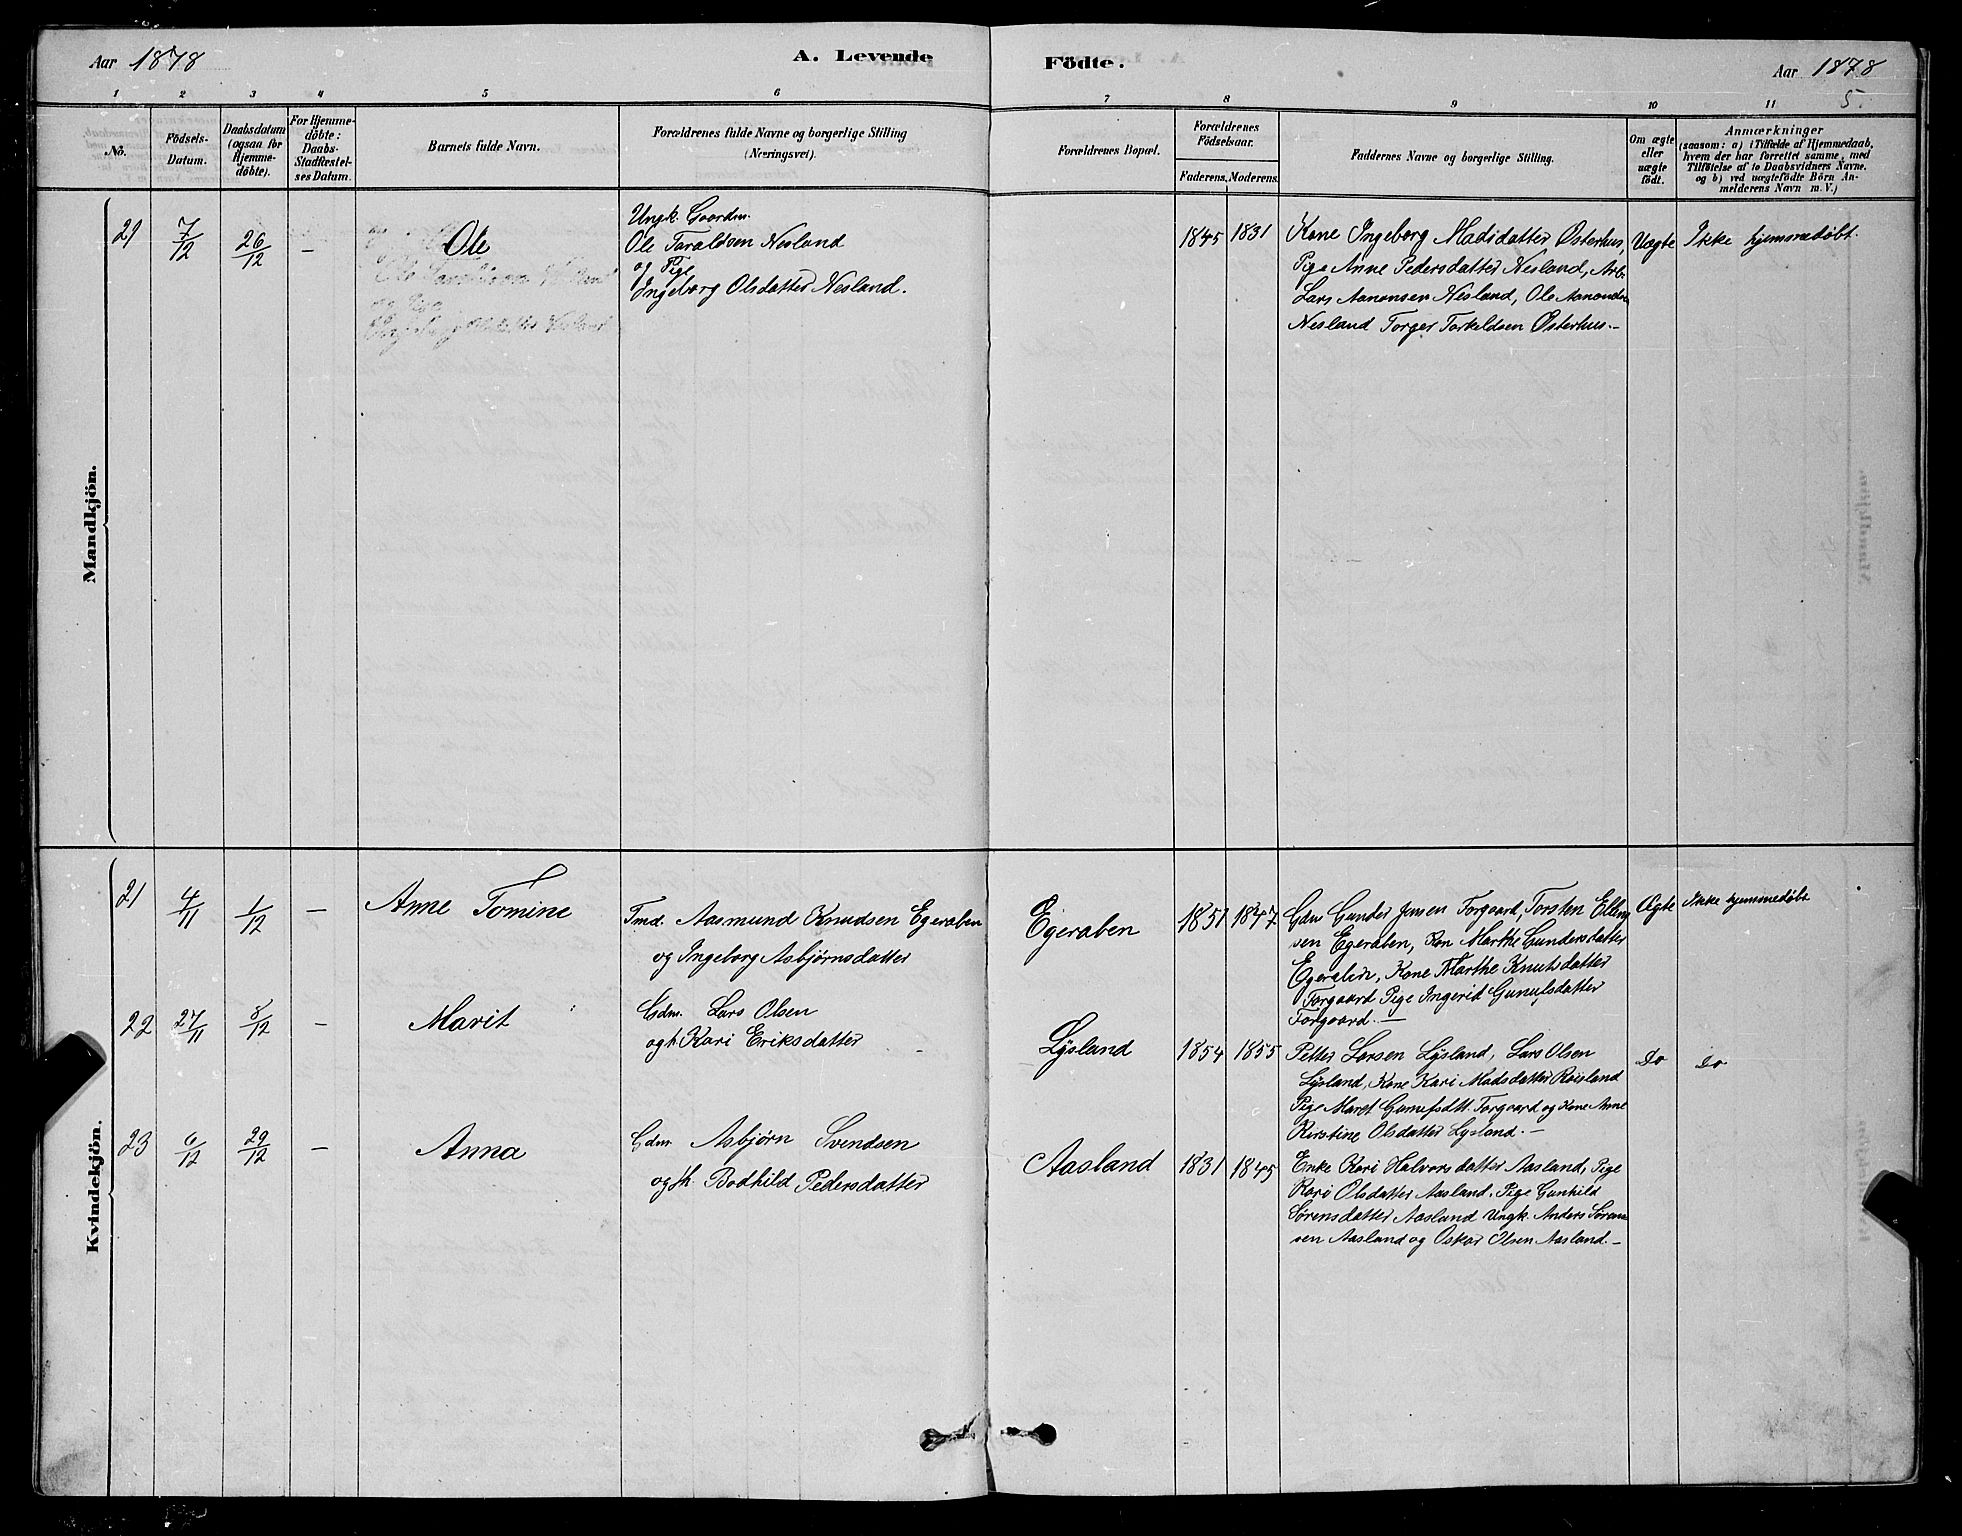 Aar 1878
A. Levende
Födte.
Aar 1878
5.
1 2 3 4 5 6 7 8 9 10 11
No.
Födsels-
Datum.
Daabsdatum
(ogsaa for
Hjemme-
döbte).
For Hjemme-
döbte:
Daabs-
Stadfæstel-
ses Datum.
Barnets fulde Navn.
Forældrenes fulde Navne og borgerlige Stilling
(Næringsvei).
Forældrenes Bopæl.
Forældrenes
Födselsaar.
Faderens. Moderens.
Faddernes Navne og borgerlige Stilling.
Om ægte
eller
uægte
födt.
Anmærkninger
(saasom: a) i Tilfælde af Hjemmedaab,
hvem der har forrettet samme, med
Tilföielse af to Daabsvidners Navne.
og b) ved uægtefödte Börn An-
melderens Navn m. V.)
Mandkjön.
21 7/12 26/12 – Ole
Ungk. Gaardm.
Ole Taraldsen Nesland
og Pige
Ingeborg Olsdatter Nesland.
1845 1831
Kone Ingeborg Madsdatter Østerhus,
Pige Anne Pedersdatter Nesland, Arb.
Lars Aanonsen Nesland, Ole Aanonsen
Nesland Torger Torkeldsen Østerhus.–
Uægte
Ikke hjemmedøbt.
Kvindekjön.
21 4/11 1/12 – Anne Tomine
Tmd. Aasmund Knudsen Egeraben
og Ingeborg Asbjørnsdatter
Egeraben 1851 1847
Gdm Gunder Jensen Forgaard, Torsten Elling
sen Egeraben, Kon Marthe Gundersdatter
Egeraben, Kone Marthe Knutsdatter
Forgaard Pige Ingerid Gunufsdatter
Forgaard.–
Ægte
Ikke hjemmedøbt
22 27/11 8/12 – Marit
Gdm. Lars Olsen
og h. Kari Eriksdatter
Lysland 1854 1855
Petter Larsen Lysland, Lars Olsen
Lysland, Kone Kari Madsdatter Røisland
Pige Maret Gunufsdtt. Forgaard og Kone Anne
Kirstine Olsdatter Lysland.–
Do Do
23 6/12 29/12 – Anna
Gdm. Asbjørn Svendsen
og h. Bodhild Pedersdatter
Aasland 1831 1845
Enke Kari Halvorsdatter Aasland, Pige
Kari Olsdatter Aasland. Pige Gunhild
Sørensdatter Aasland Ungk. Anders Søren
sen Aasland og Oskar Olsen Aasland.–